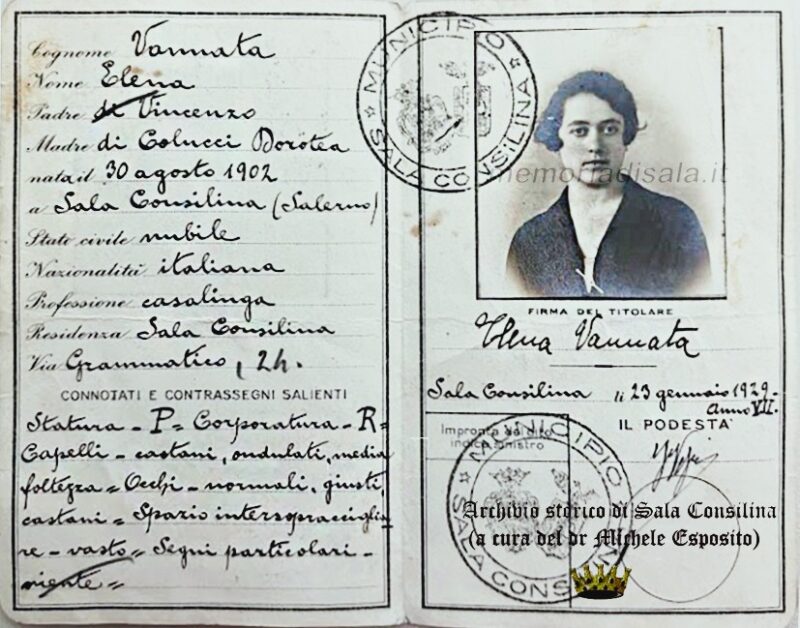 Cognome Vannata
Nome Elena
Padre di Vincenzo
Madre di Colucci Dorotea
nata il 30 agosto 1902
a Sala Consilina (Salerno)
Stato civile nubile
Nazionalità italiana
Professione casalinga
Residenza Sala Consilina
Via Grammatico, 24.
CONNOTATI E CONTRASSEGNI SALIENTI
Statura - P = Corporatura - R =
Capelli - castani, ondulati, media
foltezza = Occhi - normali, giusti,
castani = Spazio intersopracciglia-
re - vasto = Segni particolari -
niente =
★ MUNICIPIO ★ SALA CONSILINA
memoriadisala.it
FIRMA DEL TITOLARE
Elena Vannata
Sala Consilina li 23 gennaio 1929 -
Anno VII.
IL PODESTÀ
Impronta del dito
indice sinistro
★ MUNICIPIO ★ SALA CONSILINA
Archivio storico di Sala Consilina
(a cura del dr Michele Esposito)